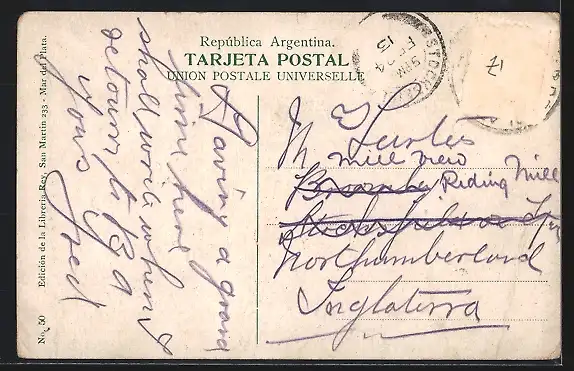 República Argentina.
TARJETA POSTAL
UNION POSTALE UNIVERSELLE
Edición de la Libreria Rey, San Martin 233 - Mar del Plata.
No. 50
Having a grand
time here
shall work when I
return to BA
Yours Fred
STOCKSFIELD
FE 24
13
71
Mill View
Riding Mill
Northumberland
Inglaterra